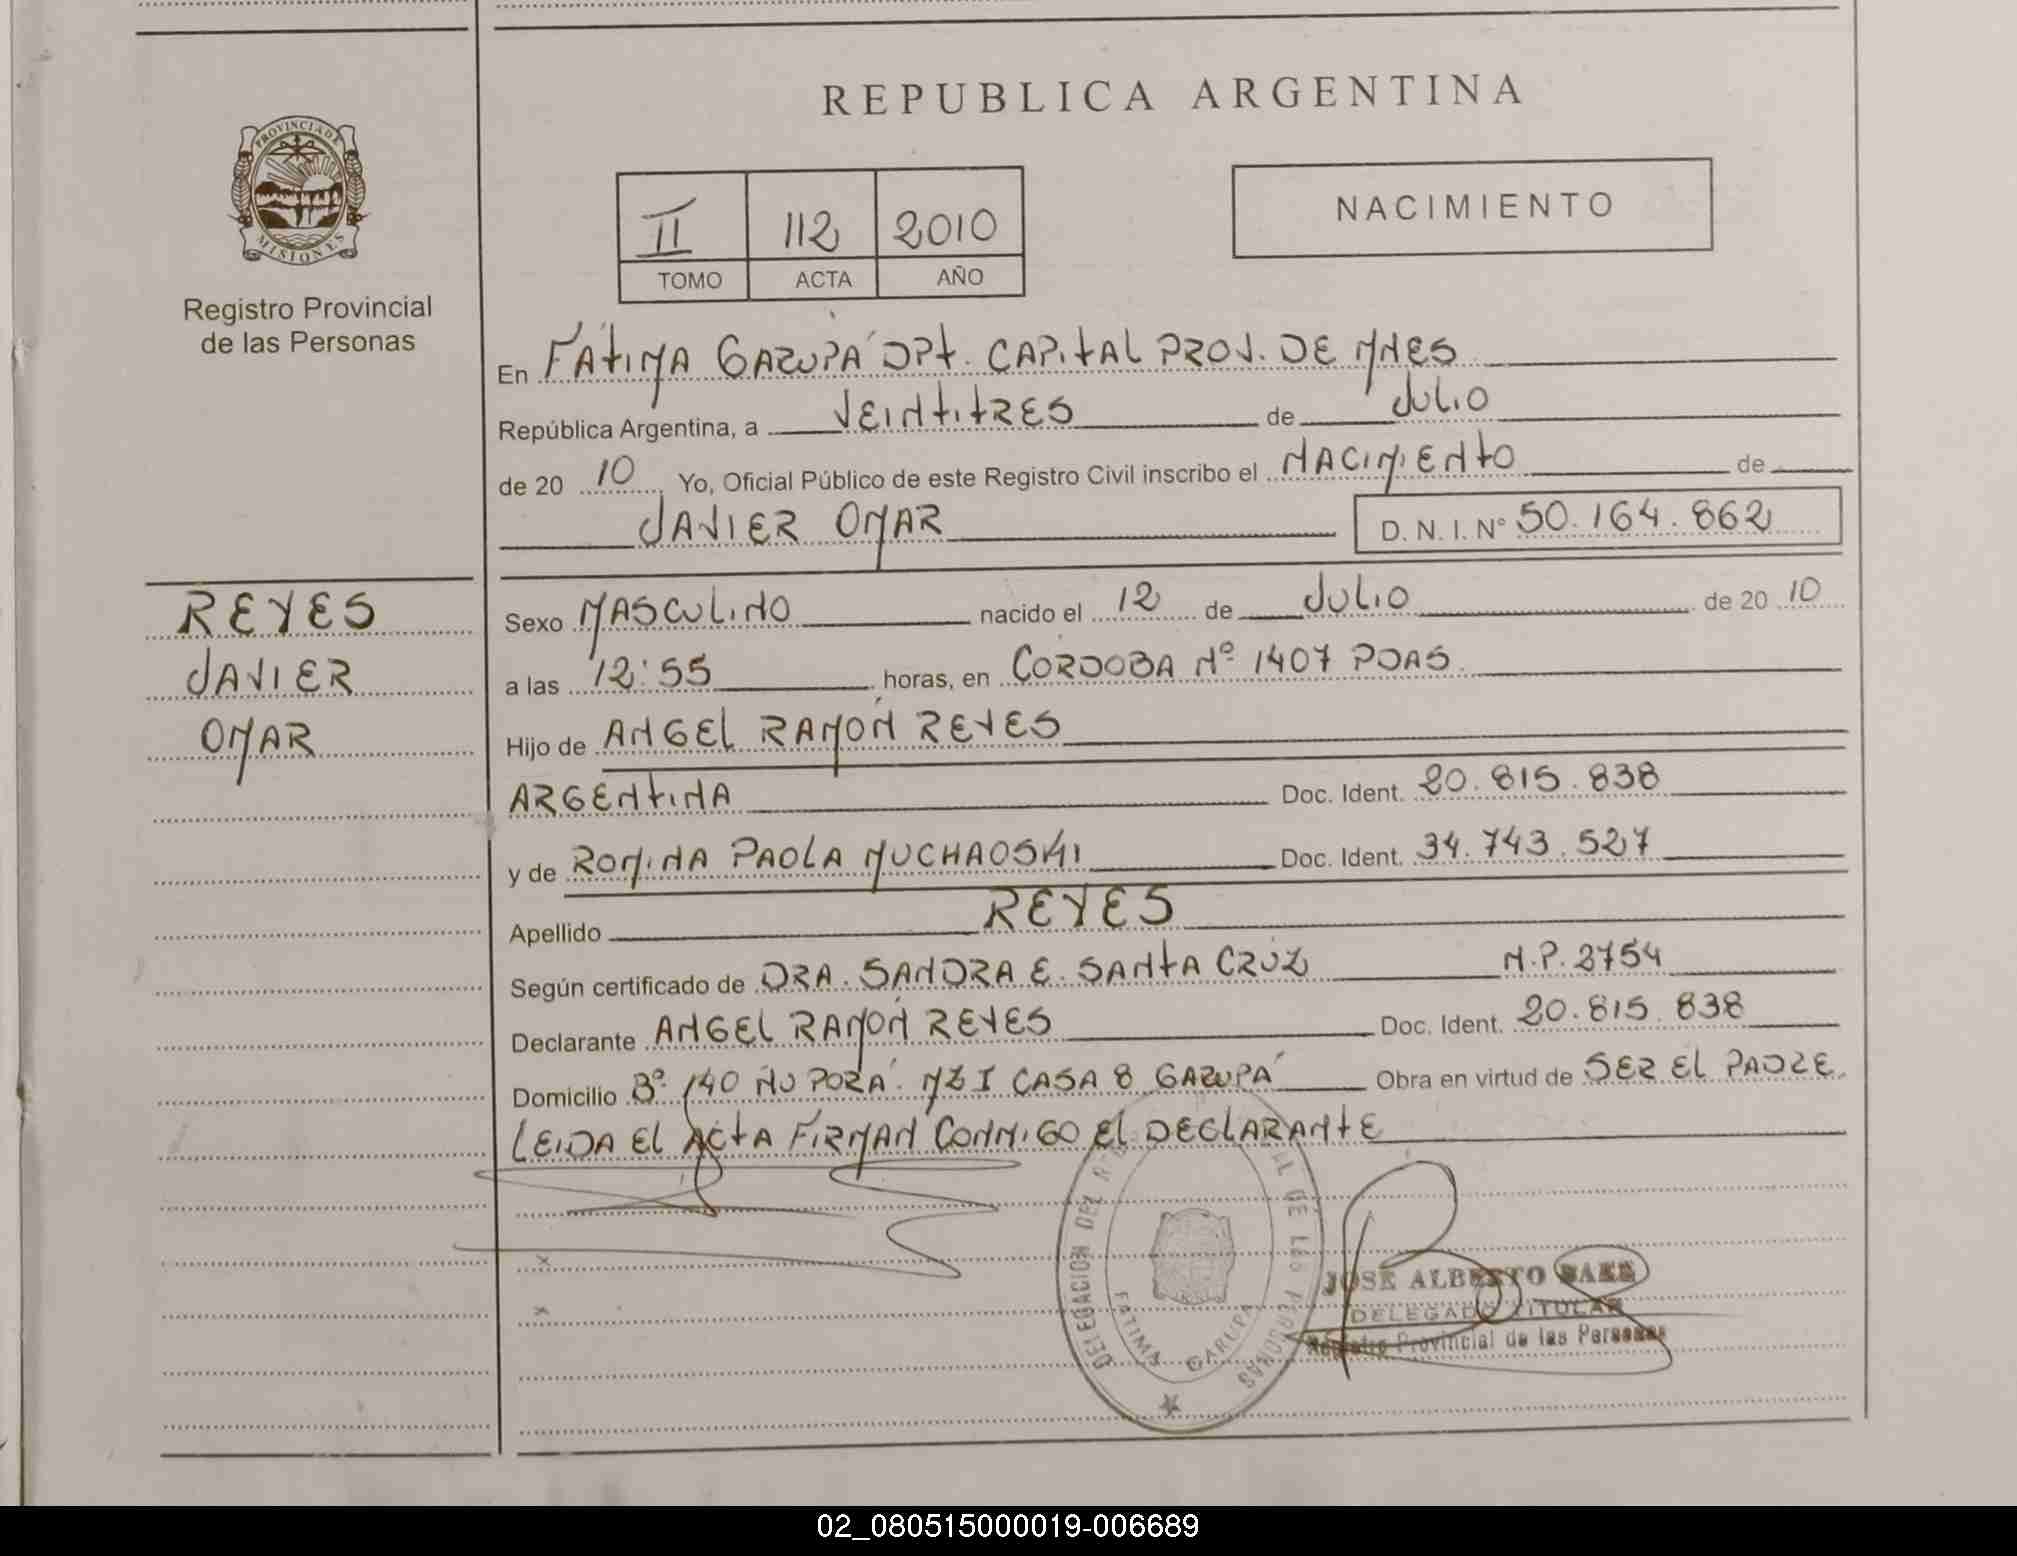 REPUBLICA ARGENTINA
PROVINCIA DE
MISIONES
Registro Provincial
de las Personas
II 112 2010
TOMO ACTA AÑO
NACIMIENTO
En FATIMA GARUPÁ DPt. CAPITAL PROV. DE MNES
República Argentina, a VEINTITRES de JULIO
de 20 10 Yo, Oficial Público de este Registro Civil inscribo el NACIMIENTO de
JAVIER OMAR D. N. I. N° 50.164.862
REYES
JAVIER
OMAR
Sexo MASCULINO nacido el 12 de JULIO de 20 10
a las 12:55 horas, en CORDOBA Nº 1407 PDAS.
Hijo de ANGEL RAMÓN REYES
ARGENTINA Doc. Ident. 20.815.838
y de ROMINA PAOLA MUCHAOSKI Doc. Ident. 34.743.527
Apellido REYES
Según certificado de DRA. SANDRA E. SANTA CRUZ M.P. 2754
Declarante ANGEL RAMÓN REYES Doc. Ident. 20.815.838
Domicilio Bº 140 ÑU PORÁ. MZ I CASA 8 GARUPÁ Obra en virtud de SER EL PADRE
LEIDA EL ACTA FIRMAN CONMIGO EL DECLARANTE
DELEGACION DEL DE LAS PERSONAS
FATIMA GARUPA
JOSE ALBERTO
DELEGADO TITULAR
Registro Provincial de las Personas
02_080515000019-006689